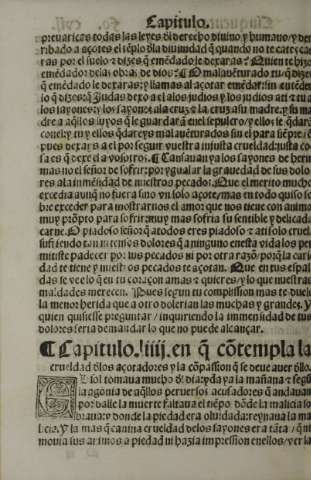 Capitulo.
preuaricas todas las leyes dl derecho diuino y humano/y der
ribado a açores el tẽplo dla diuinidad quando no te cateẏcas
ras por el suelo z dizes q̃ emẽdado le dexaras? Quien te hizo
emẽdador delas obras de dios? O malauẽturado tu/ q̃ dizes
q̃ emẽdado le dexaras/y llamas al açotar emẽdar: sin entẽder
lo q̃ dizes: q̃ Judas dexo a el alos judios y los judios a ti
y los sayones a la cruz z la cruz a su madre
madre a aq̃llos suyos q̃ le guardarã en el sepulcro/y ellos se q̃darã
conel: y tu y ellos q̃dareys malauẽturados sin el para siẽpre
pues dexars a el por seguir vuestra injusta crueldad: justa co
sa es q̃ dexe el a vosotros. Cansauan ya los sayones de herir
mas no el señor de sofrir: por ygualar la grauedad de sus dolo
res ala inmẽsidad de nuestros pecados. Que el merito mucho
excedia aunq̃ no fuera sino vn solo açote/mas en todo quiso so
bre exceder para mostrarnos el amor que nos tiene con animo
muy prõpto para sofrir: muy mas sofria su sensible y delicada
carne. O piadoso señor q̃ atodos eres piadoso z a ti solo cruel
sufriendo tan intensos dolores q̃ a ninguno enesta vida los per
mitiste padecer por sus pecados ni por otra razõ: porq̃ la cari
dad te tiene y nuestros pecados te açotan. Que en tus espal
das se vee lo q̃ en tu coraçon amas z quieres/y lo que nuestras
maldades merecen. Pues segun tu complission mas te duele
la menor herida que a otro dolerian las muchas y grandes. Y
quien quisiesse preguntar / inquiriendo la inmensidad de tus
dolores seria demandar lo que no puede alcançar.
Capitulo .liiij. en q̃ cõtempla la
crueldad dlos açotadores y la cõpassion q̃ se deue auer dllo.
El sol tomaua mucho dl dia: yda ya la mañana z segũ
la agonia de aq̃llos peruersos acusadores q̃ andauan
por dalle la muerte faltaua el tiẽpo. dõde la malicia so
braua: y donde la piedad era oluidada: reynaua la ma
licia. Y la mas q̃ canina crueldad delos sayones era tãta / q̃ ni
mouia sus animos a piedad ni hazia impression enellos/ver la